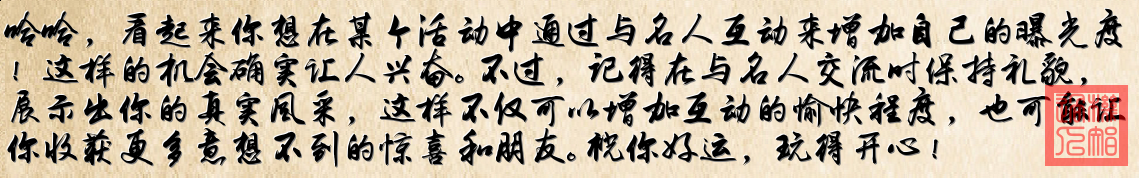 哈哈，看起来你想在某个活动中通过与名人互动来增加自己的曝光度
！这样的机会确实让人兴奋。不过，记得在与名人交流时保持礼貌，
展示出你的真实风采，这样不仅可以增加互动的愉快程度，也可能让
你收获更多意想不到的惊喜和朋友。祝你好运，玩得开心！